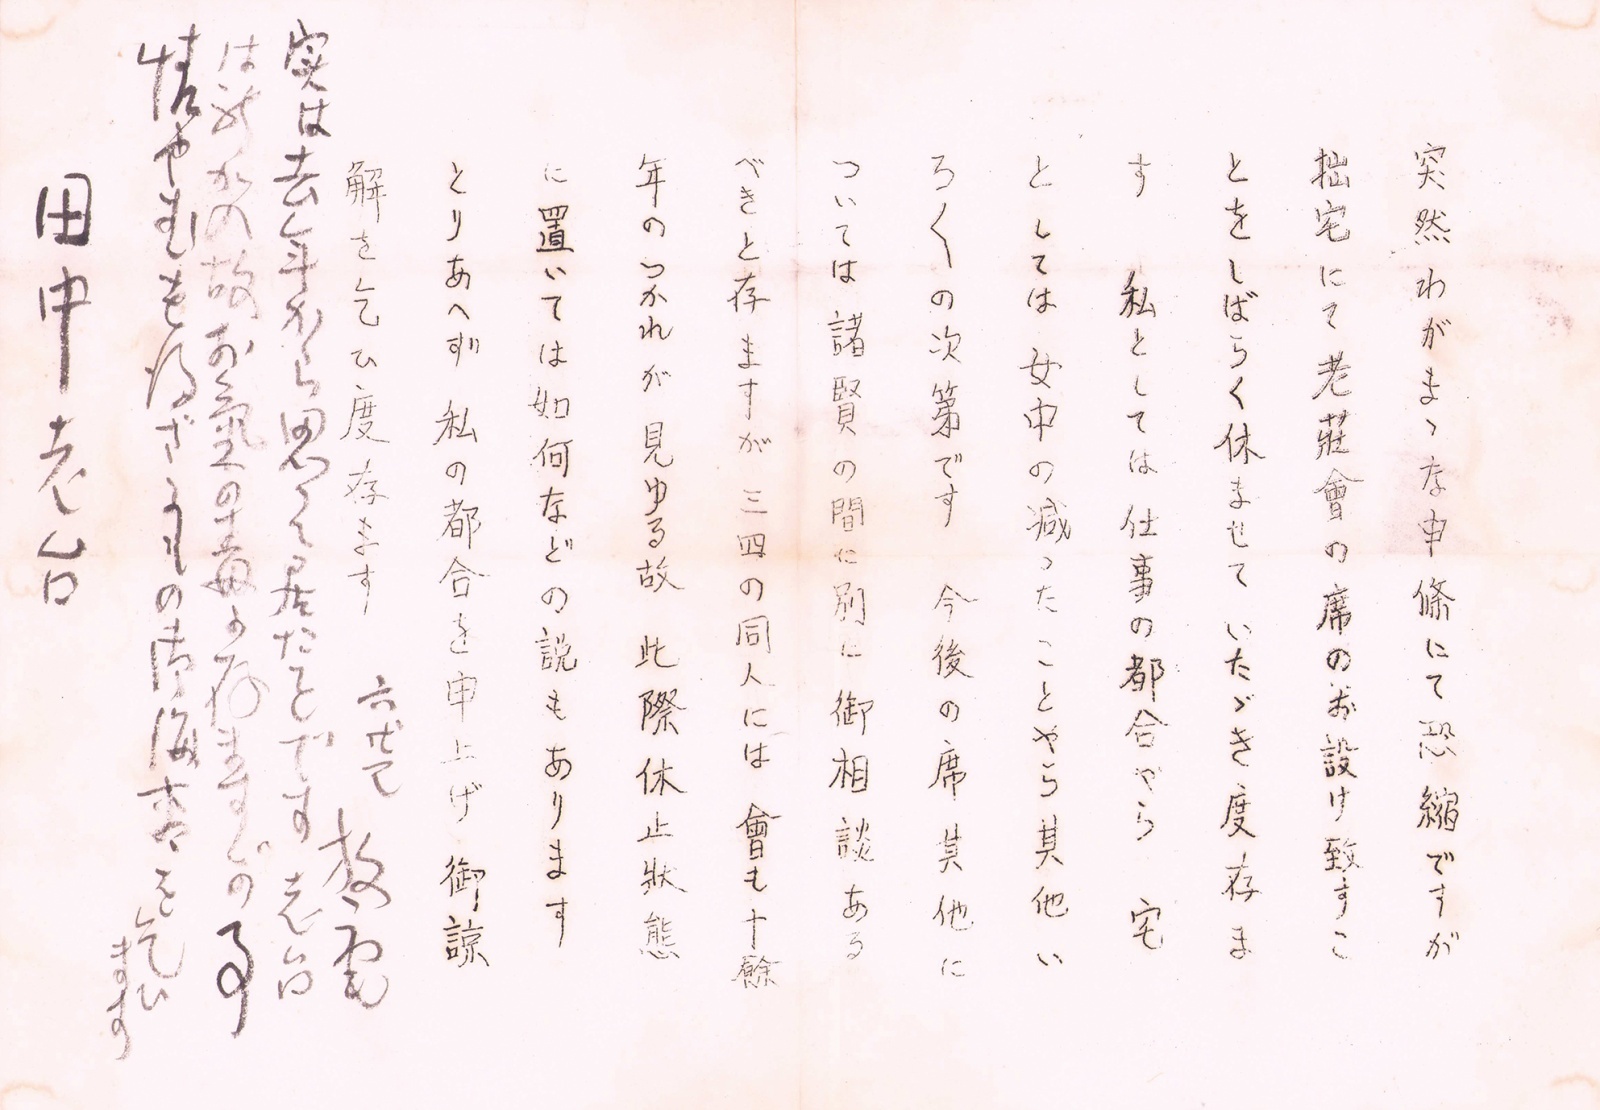 突然わがまゝな申條にて恐縮ですが
拙宅にて老莊會の席のお設け致すこ
とをしばらく休ませていたゞき度存ま
す　私としては仕事の都合やら　宅
としては女中の減ったことやら其他い
ろ〱の次第です　今後の席其他に
ついては諸賢の間に別に御相談ある
べきと存ますが　三四の同人には會も十餘
年のつかれが見ゆる故　此際休止狀態
に置いては如何などの説もあります
とりあへず私の都合を申上げ御諒
解を乞ひ度存ます
六廿七
実は去年から思って居たことです　老台
は故お氣の毒に存ますがの事
情やむを得ざるもの御海容を乞ひ
ます
田中老台